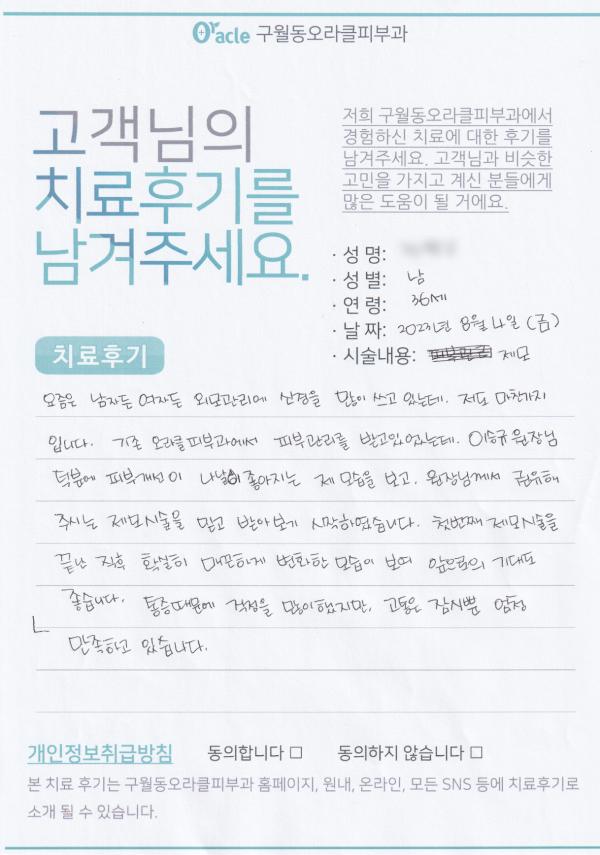 Oracle 구월동오라클피부과
고객님의
치료후기를
남겨주세요.
저희 구월동오라클피부과에서
경험하신 치료에 대한 후기를
남겨주세요. 고객님과 비슷한
고민을 가지고 계신 분들에게
많은 도움이 될 거에요.
· 성 명:
· 성 별: 남
· 연 령: 36세
· 날 짜: 2023년 8월 4일 (금)
· 시술내용: 제모
치료후기
요즘은 남자든 여자든 외모관리에 신경을 많이 쓰고 있는데. 저도 마찬가지
입니다. 기존 오라클피부과에서 피부관리를 받고있었는데. 이승규 원장님
덕분에 피부개선이 나날이 좋아지는 제 모습을 보고. 원장님께서 권유해
주시는 제모시술을 믿고 받아보기 시작하였습니다. 첫번째 제모시술을
끝난 직후 확실히 매끈하게 변화한 모습이 보여 앞으로의 기대도
좋습니다. 통증때문에 걱정을 많이했지만, 고통은 잠시뿐 엄청
만족하고 있습니다.
개인정보취급방침 동의합니다 □ 동의하지 않습니다 □
본 치료 후기는 구월동오라클피부과 홈페이지, 원내, 온라인, 모든 SNS 등에 치료후기로
소개 될 수 있습니다.